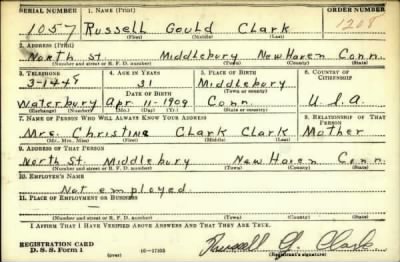 SERIAL NUMBER 1. NAME (Print) ORDER NUMBER
1057 Russell Gould Clark 1208
(First) (Middle) (Last)
2. ADDRESS (Print)
North St. Middlebury New Haven Conn.
(Number and street or R. F. D. number) (Town) (County) (State)
3. TELEPHONE 4. AGE IN YEARS 5. PLACE OF BIRTH 6. COUNTRY OF CITIZENSHIP
3-1448 31 Middlebury
DATE OF BIRTH (Town or county)
Waterbury Apr. 11-1909 Conn. U.S.A.
(Exchange) (Mo.) (Day) (Yr.) (State or country)
7. NAME OF PERSON WHO WILL ALWAYS KNOW YOUR ADDRESS 8. RELATIONSHIP OF THAT PERSON
Mrs. Christina Clark Clark Mother
(Mr., Mrs., Miss) (First) (Middle) (Last)
9. ADDRESS OF THAT PERSON
North St. Middlebury New Haven Conn.
(Number and street or R. F. D. number) (Town) (County) (State)
10. EMPLOYER'S NAME
Not employed
11. PLACE OF EMPLOYMENT OR BUSINESS
(Number and street or R. F. D. number) (Town) (County) (State)
I AFFIRM THAT I HAVE VERIFIED ABOVE ANSWERS AND THAT THEY ARE TRUE.
REGISTRATION CARD
D. S. S. Form 1 (over) 16-17105 Russell G. Clark
(Registrant's signature)